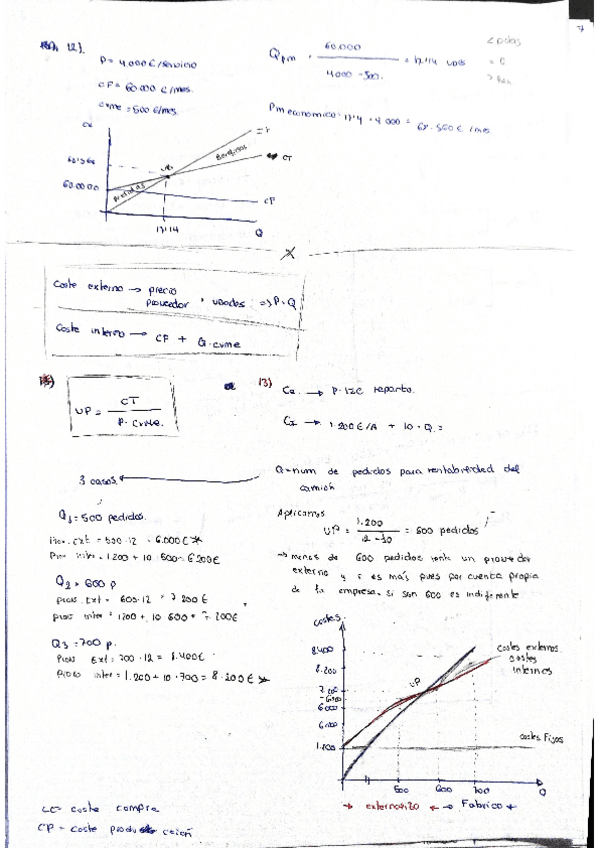 7
12).
P = 4.000 €/servicio
CF = 60.000 €/mes.
cvme = 500 €/mes.
Qpm = 60.000 / 4000 - 500 = 17'14 uds
Pm economico = 17'14 · 4.000 = 68.560 € /mes.
CT
Beneficios
Perdidas
60.0000
CF
17'14
Q
Coste externo → precio
proveedor · unidades => P·Q
Coste interno → CF + Q·cvme
UP = CT / P - Cvme.
3 casos.
Q1 = 500 pedidos.
Prov. ext = 500·12 = 6.000€
Prov inter = 1.200 + 10·500 = 6.200€
Q2 = 600 p
prov. Ext = 600·12 = 7.200 €
prov inter = 1200 + 10·600 = 7.200€
Q3 = 700 p.
Prov Ext = 700·12 = 8.400€
Prov inter = 1.200 + 10·700 = 8.200€
13)
→ P·12€ reparto.
→ 1.200€/A + 10·Q =
Q = num de pedidos para rentabilidad del
camión
Aplicamos
UP = 1.200 / 12 - 10 = 600 pedidos
→ menos de 600 pedidos renta un proveedor
externo y si es más pues por cuenta propia
de la empresa. si son 600 es indiferente
costes
8.400
8.200
7.200
6.000
1.200
UP
Costes externos
costes
internos
costes Fijos
500
600
700
Q
→ externalizo ← → Fabrico ←
CC = coste compra
CP = coste producción